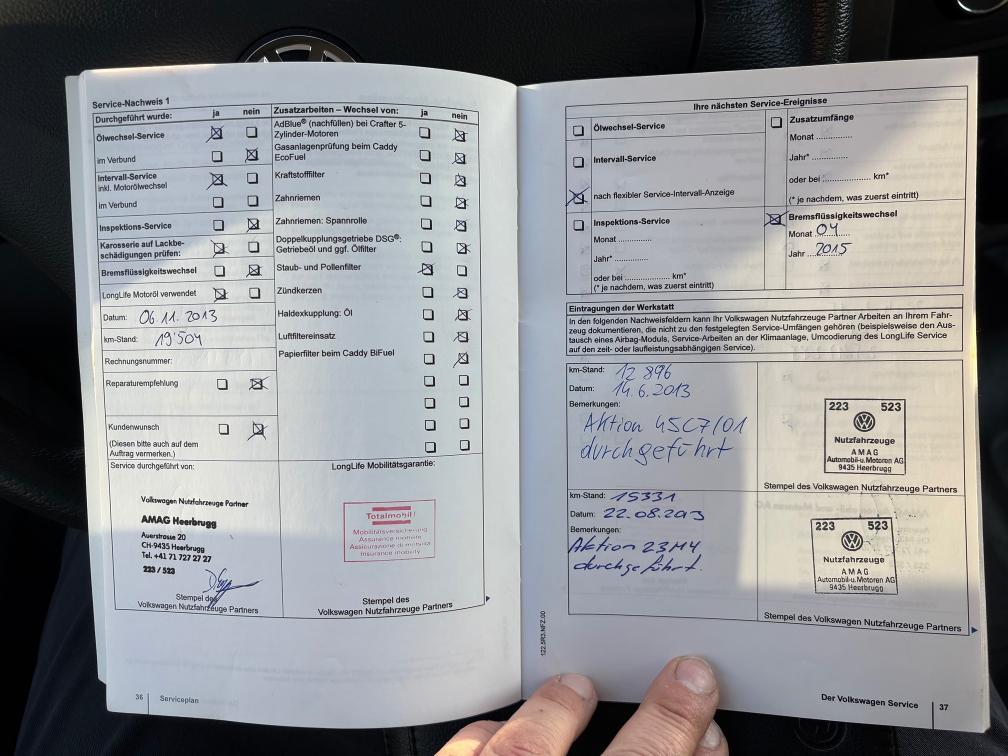 Service-Nachweis 1
Durchgeführt wurde: ja nein
Ölwechsel-Service
im Verbund
Intervall-Service
inkl. Motorölwechsel
im Verbund
Inspektions-Service
Karosserie auf Lackbe-
schädigungen prüfen:
Bremsflüssigkeitswechsel
LongLife Motoröl verwendet
Datum: 06.11.2013
km-Stand: 19'504
Rechnungsnummer:
Reparaturempfehlung
Kundenwunsch
(Diesen bitte auch auf dem
Auftrag vermerken.)
Service durchgeführt von:
Volkswagen Nutzfahrzeuge Partner
AMAG Heerbrugg
Auerstrasse 20
CH-9435 Heerbrugg
Tel. +41 71 727 27 27
223 / 523
Stempel des
Volkswagen Nutzfahrzeuge Partners
Zusatzarbeiten – Wechsel von: ja nein
AdBlue® (nachfüllen) bei Crafter 5-
Zylinder-Motoren
Gasanlagenprüfung beim Caddy
EcoFuel
Kraftstofffilter
Zahnriemen
Zahnriemen: Spannrolle
Doppelkupplungsgetriebe DSG®:
Getriebeöl und ggf. Ölfilter
Staub- und Pollenfilter
Zündkerzen
Haldexkupplung: Öl
Luftfiltereinsatz
Papierfilter beim Caddy BiFuel
LongLife Mobilitätsgarantie:
Totalmobil!
Mobilitätsversicherung
Assurance mobilité
Assicurazione di mobilità
Insurance mobility
Stempel des
Volkswagen Nutzfahrzeuge Partners
36 Serviceplan
Ihre nächsten Service-Ereignisse
Ölwechsel-Service
Intervall-Service
nach flexibler Service-Intervall-Anzeige
Inspektions-Service
Monat ............
Jahr* ............
oder bei ..................... km*
(* je nachdem, was zuerst eintritt)
Zusatzumfänge
Monat ............
Jahr* ............
oder bei .................. km*
(* je nachdem, was zuerst eintritt)
Bremsflüssigkeitswechsel
Monat 04
Jahr 2015
Eintragungen der Werkstatt
In den folgenden Nachweisfeldern kann Ihr Volkswagen Nutzfahrzeuge Partner Arbeiten an Ihrem Fahr-
zeug dokumentieren, die nicht zu den festgelegten Service-Umfängen gehören (beispielsweise den Aus-
tausch eines Airbag-Moduls, Service-Arbeiten an der Klimaanlage, Umcodierung des LongLife Service
auf den zeit- oder laufleistungsabhängigen Service).
km-Stand: 12 896
Datum: 14.6.2013
Bemerkungen:
Aktion 45C7/01
durchgeführt
223 523
Nutzfahrzeuge
AMAG
Automobil-u. Motoren AG
9435 Heerbrugg
Stempel des Volkswagen Nutzfahrzeuge Partners
km-Stand: 15331
Datum: 22.08.2013
Bemerkungen:
Aktion 23M4
durchgeführt.
223 523
Nutzfahrzeuge
AMAG
Automobil-u. Motoren AG
9435 Heerbrugg
Stempel des Volkswagen Nutzfahrzeuge Partners
122.5R3.NFZ.00
Der Volkswagen Service 37